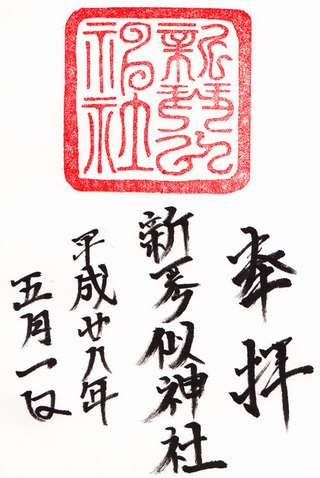 新琴似神社
奉拝
新琴似神社
平成廿八年
五月一日